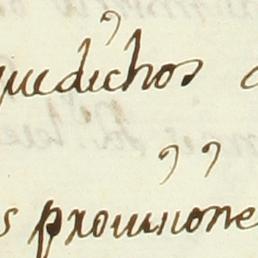 que dichos
s prouisione